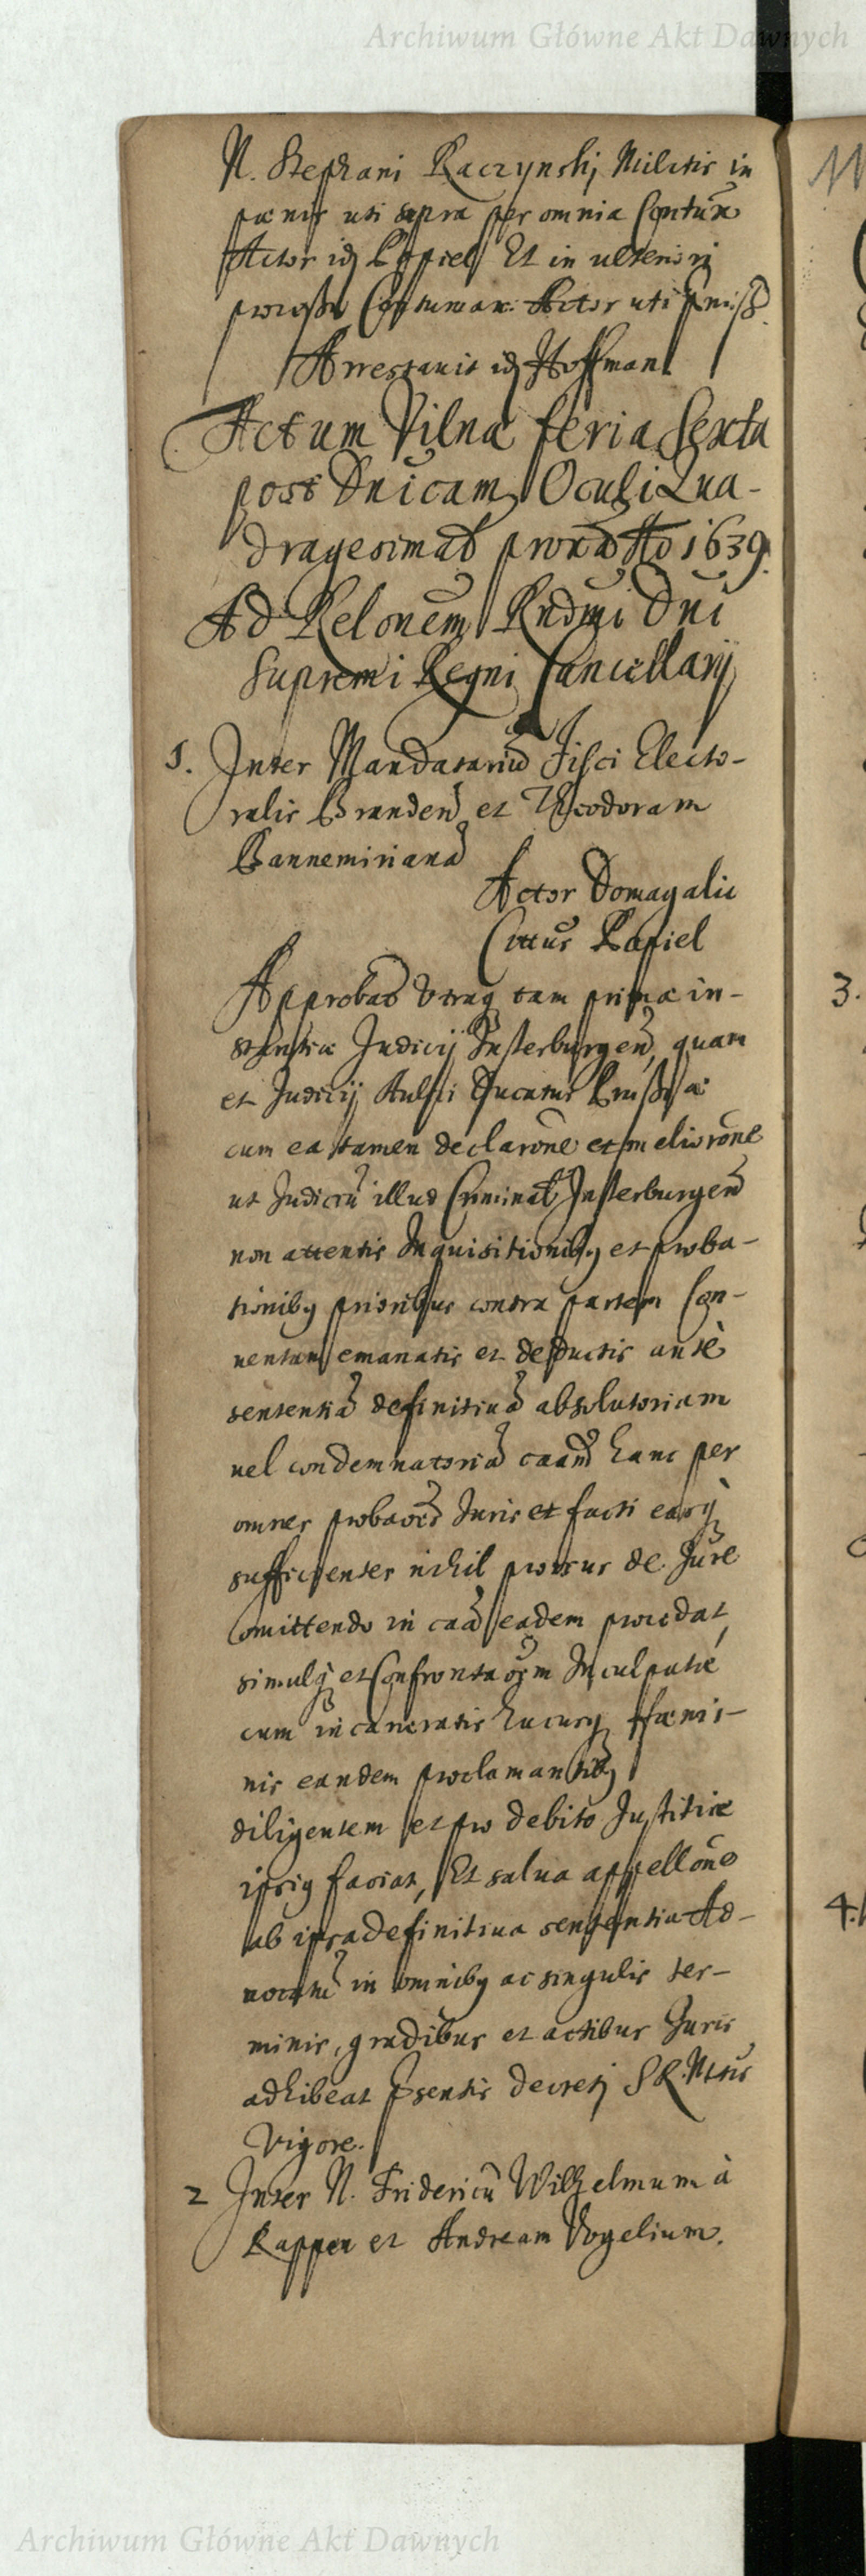 Archiwum Główne Akt Dawnych
N. Stephani Raczynskj Militis in
pœnis uti supra per omnia Contũx
Actor idẽ Papiel Et in ulteriori
processu Contumax. Actor uti p̃miss
Arrestauit idẽ Hoffman
Actum Vilnæ feria Sexta
post Dnĩcam Oculi Qua-
dragesimalẽ proxã Ao 1639.
Ad Relonẽm Rndmĩ Dnĩ
Supremi Regni Cancellarij
1. Inter Mandatariũ Fisci Electo-
ralis Brandeñ et Theodoram
Banneminianã
Actor Domagalic
Cittus Papiel
Approbat utrãq tam primæ in-
stantiæ Judicij Insterburgeñ, quam
et Judicij Aulici Ducatus Prussiæ
cum ea tamen declaronẽ et melioronẽ
ut Judiciũ illud Criminalẽ Insterburgeñ
non attentis Inquisitionibq et proba-
tionibq prioribus contra partem Con-
uentam emanatis et deductis antè
sententiã definitiuã absolutoriam
uel condemnatoriã caũam hanc per
omnes probaoẽs Juris et facti earq̃
sufficienter nihil prorsus de Jure
omittendo in caũa eadem procedat,
simulq̃ et Confrontaoẽm Inculpatæ
cum incarceratis hucusq fœmi-
nis eandem proclamantibq
diligentem et pro debito Justitiæ
ipsiq faciat, Et salua appellonẽ
ab ipsa definitiua sententia Ad-
uocatũ in omnibq ac singulis ter-
minis, gradibus et actibus Juris
adhibeat p̃sentis decretj S R. Mtis
Vigore.
2 Inter N. Fridericũ Wilhelmum à
Kappen et Andream Vogelium.
3.
4.
Archiwum Główne Akt Dawnych